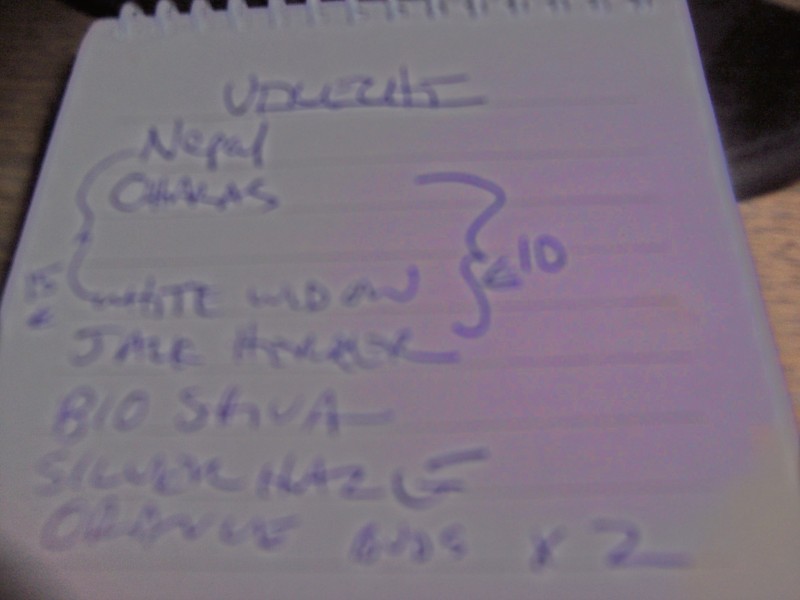 UTRECHT
Nepal
CHARAS
€10
15
€
WHITE WIDOW
JACK HERRER
BIO SATIVA
SILVER HAZE
ORANGE BUDS x 2